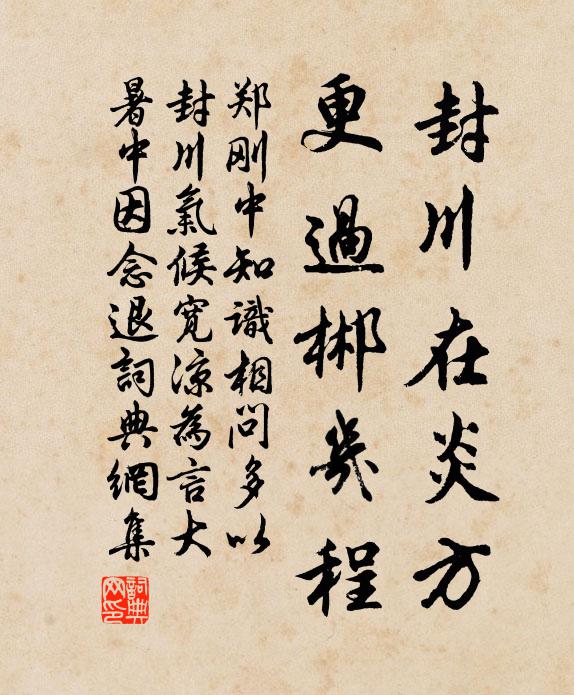 封川在炎方
更過郴幾程
郑刚中知識相問多以
封川氣候寬凉為言大
暑中因念退詞典網集
詞典網印